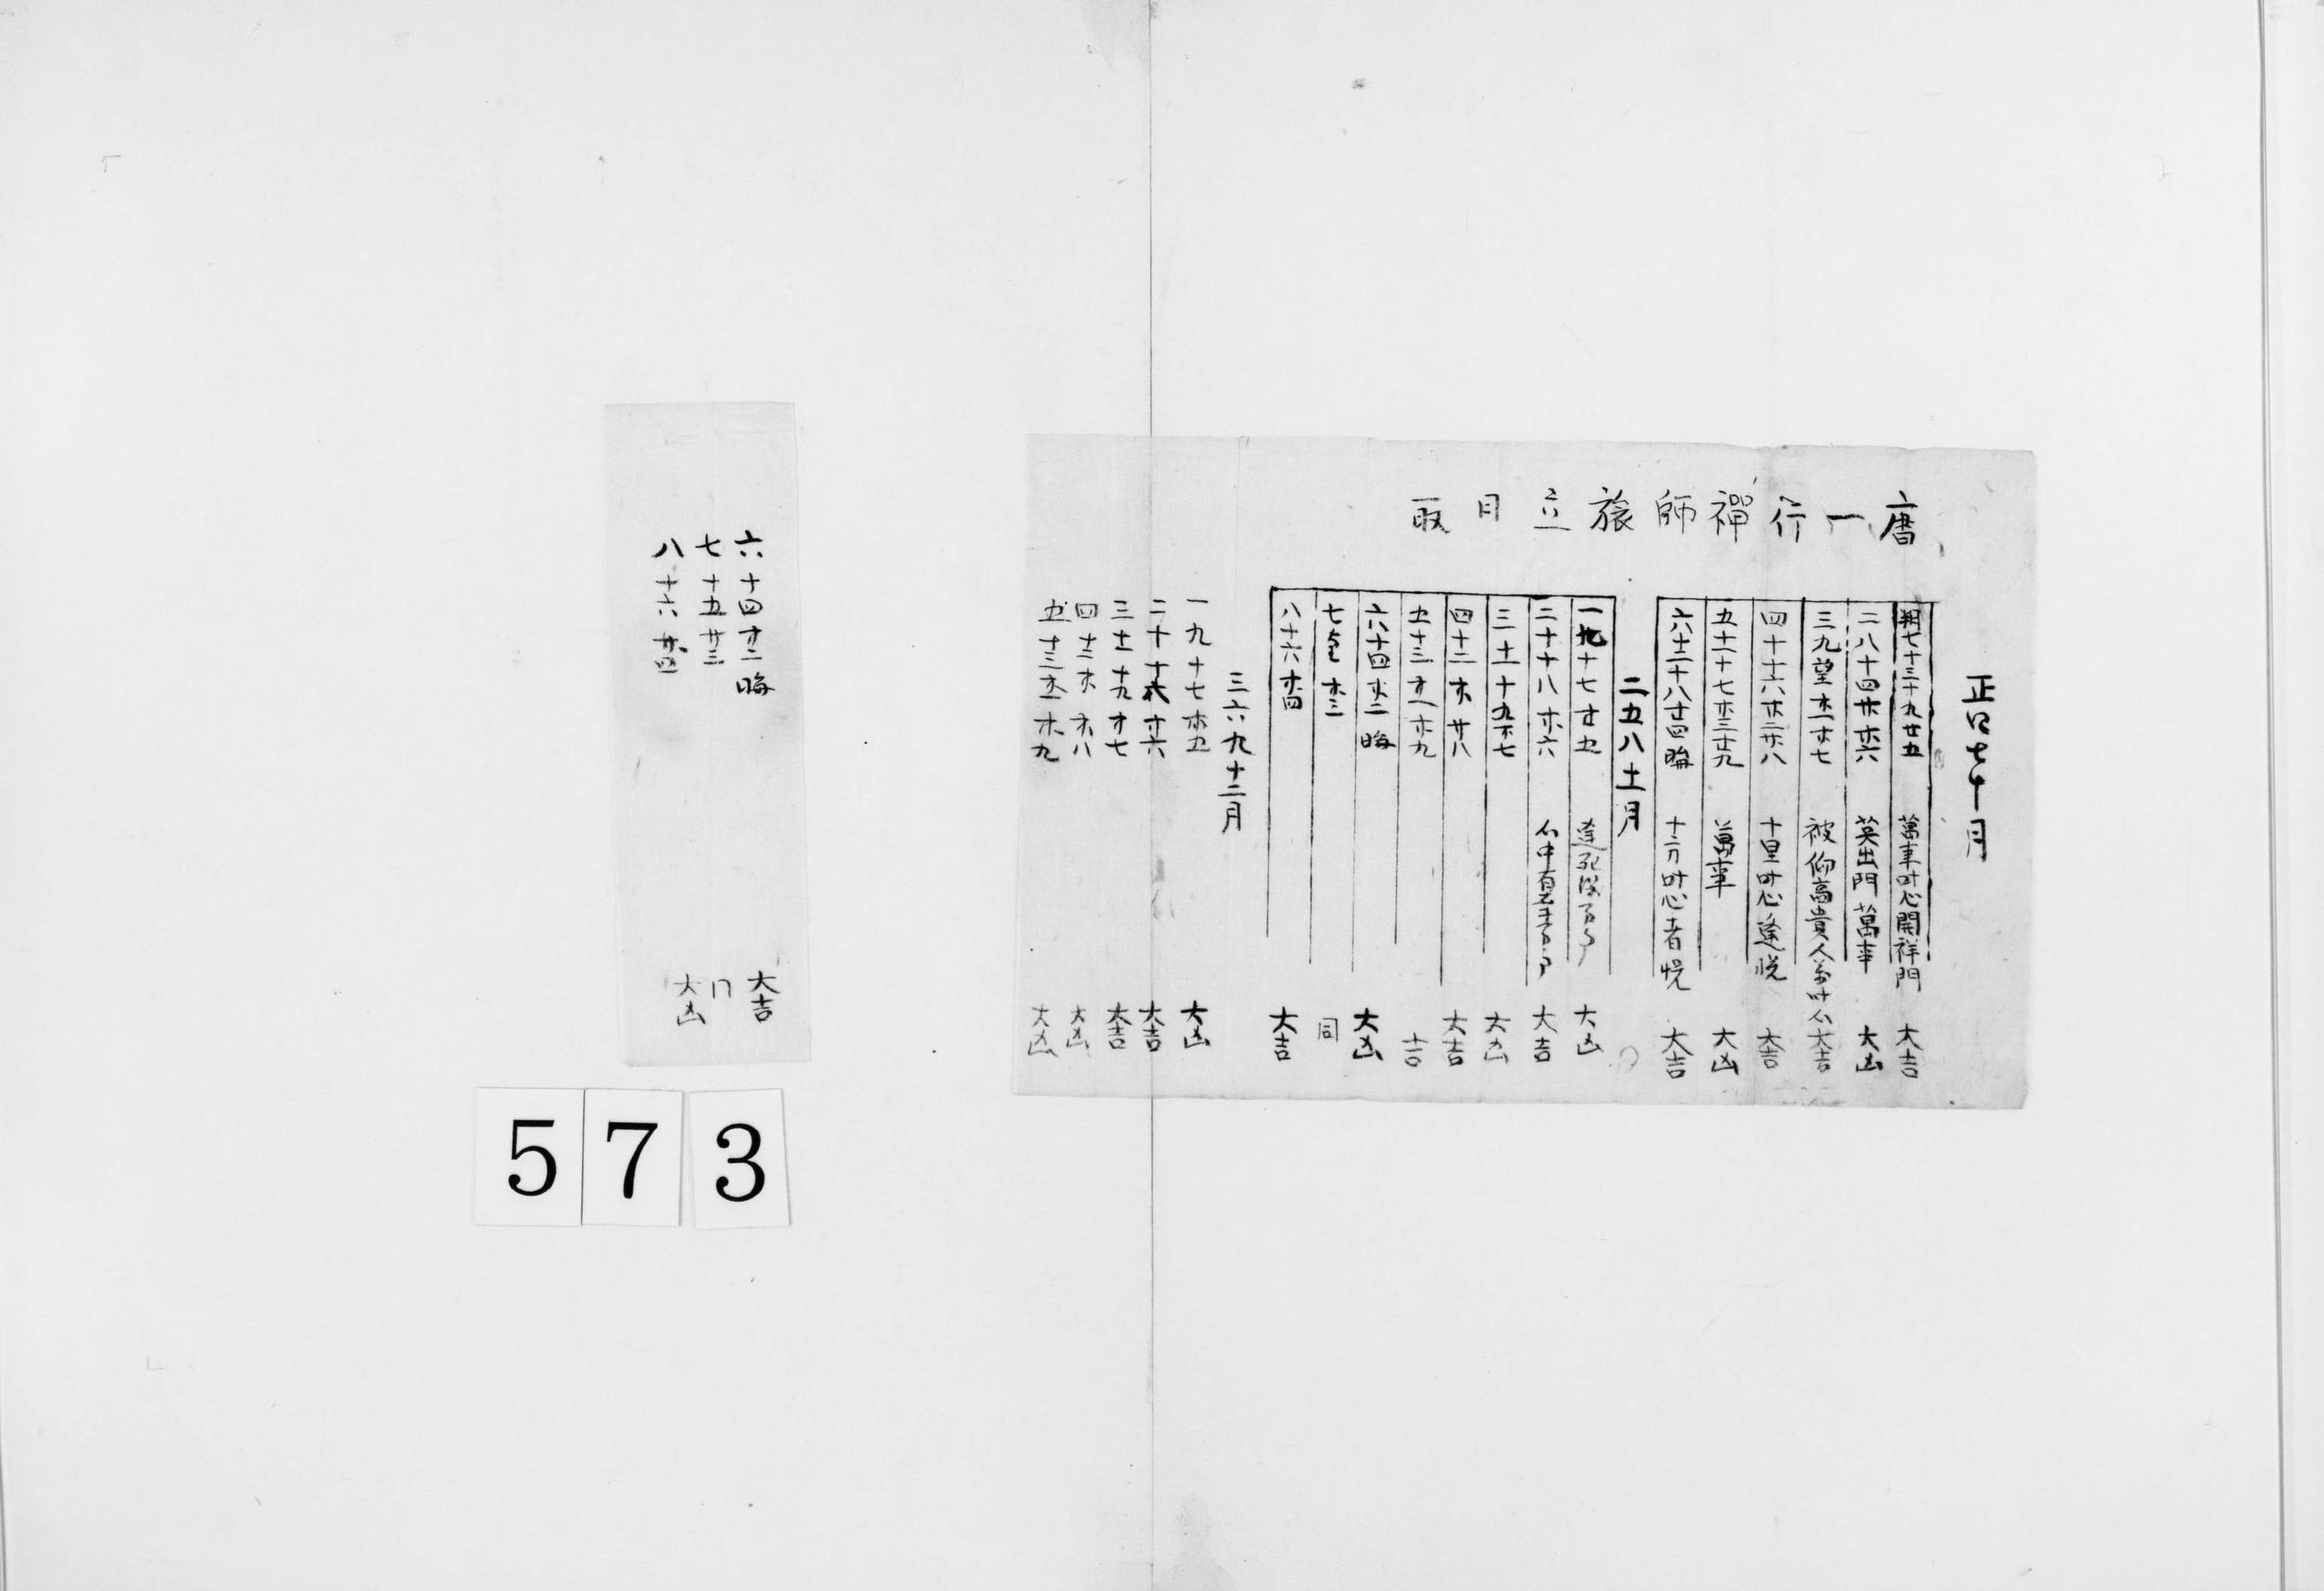 唐一行禪師旅立日取
正四七十月
朔七十三十九廿五 萬事叶心開祥門 大吉
二八十四廿廿六 英出門萬事 大凶
三九望廿一廿七 被仰高貴人万叶心 大吉
四十十六廿二廿八 十里叶心逢悦 大吉
五十一十七廿三廿九 萬事 大凶
六十二十八廿四晦 十二分叶心者悦 大吉
二五八十一月
一九十七廿五 大凶
二十十八廿六 心中有 大吉
三十一十九廿七 大凶
四十二廿廿八 大吉
五十三廿一廿九 吉
六十四廿二晦 大凶
七 廿三 同
八十六廿四 大吉
三六九十二月
一九十七廿五 大凶
二十十八廿六 大吉
三十一十九廿七 大吉
四十二廿廿八 大凶
五十三廿一廿九 大凶
六十四廿二晦 大吉
七十五廿三
八十六廿四 大凶
573